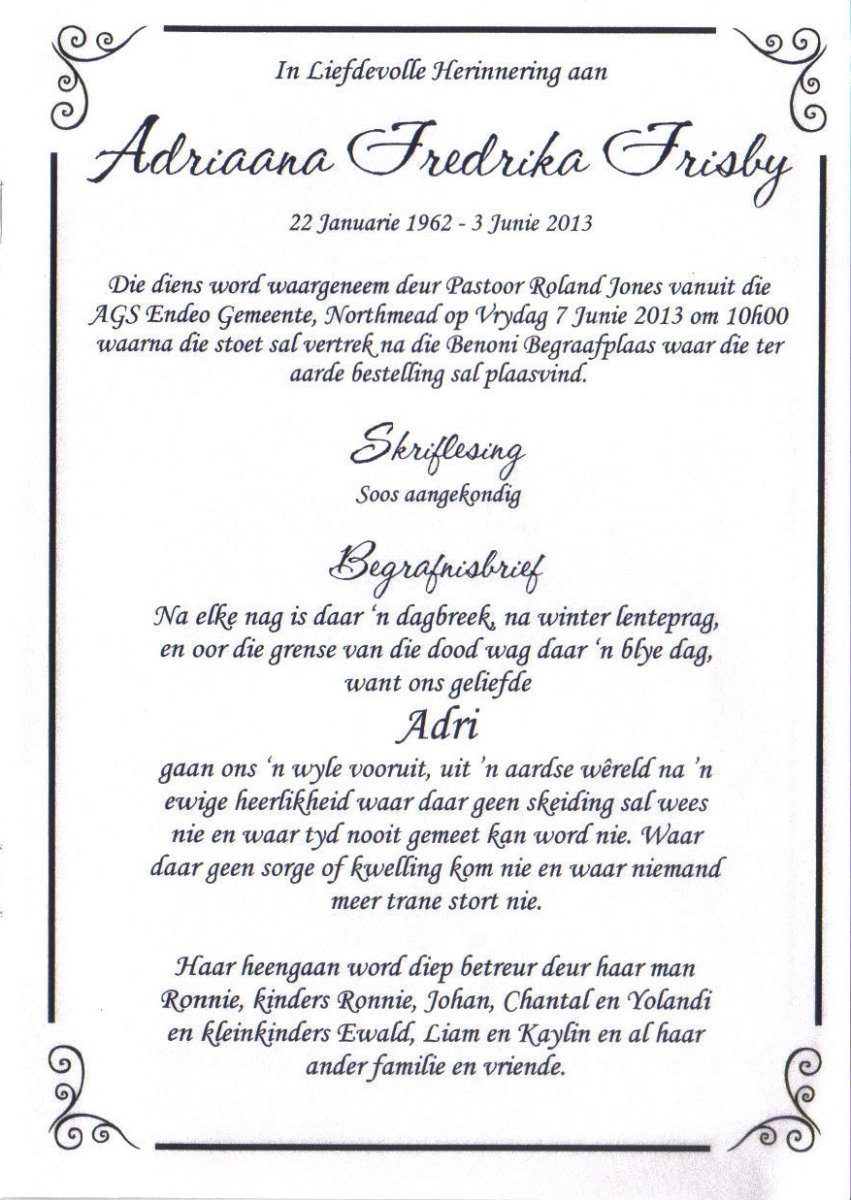 In Liefdevolle Herinnering aan
Adriaana Fredrika Frisby
22 Januarie 1962 - 3 Junie 2013
Die diens word waargeneem deur Pastoor Roland Jones vanuit die
AGS Endeo Gemeente, Northmead op Vrydag 7 Junie 2013 om 10h00
waarna die stoet sal vertrek na die Benoni Begraafplaas waar die ter
aarde bestelling sal plaasvind.
Skriflesing
Soos aangekondig
Begrafnisbrief
Na elke nag is daar ‘n dagbreek, na winter lenteprag,
en oor die grense van die dood wag daar ‘n blye dag,
want ons geliefde
Adri
gaan ons ‘n wyle vooruit, uit ’n aardse wêreld na ’n
ewige heerlikheid waar daar geen skeiding sal wees
nie en waar tyd nooit gemeet kan word nie. Waar
daar geen sorge of kwelling kom nie en waar niemand
meer trane stort nie.
Haar heengaan word diep betreur deur haar man
Ronnie, kinders Ronnie, Johan, Chantal en Yolandi
en kleinkinders Ewald, Liam en Kaylin en al haar
ander familie en vriende.